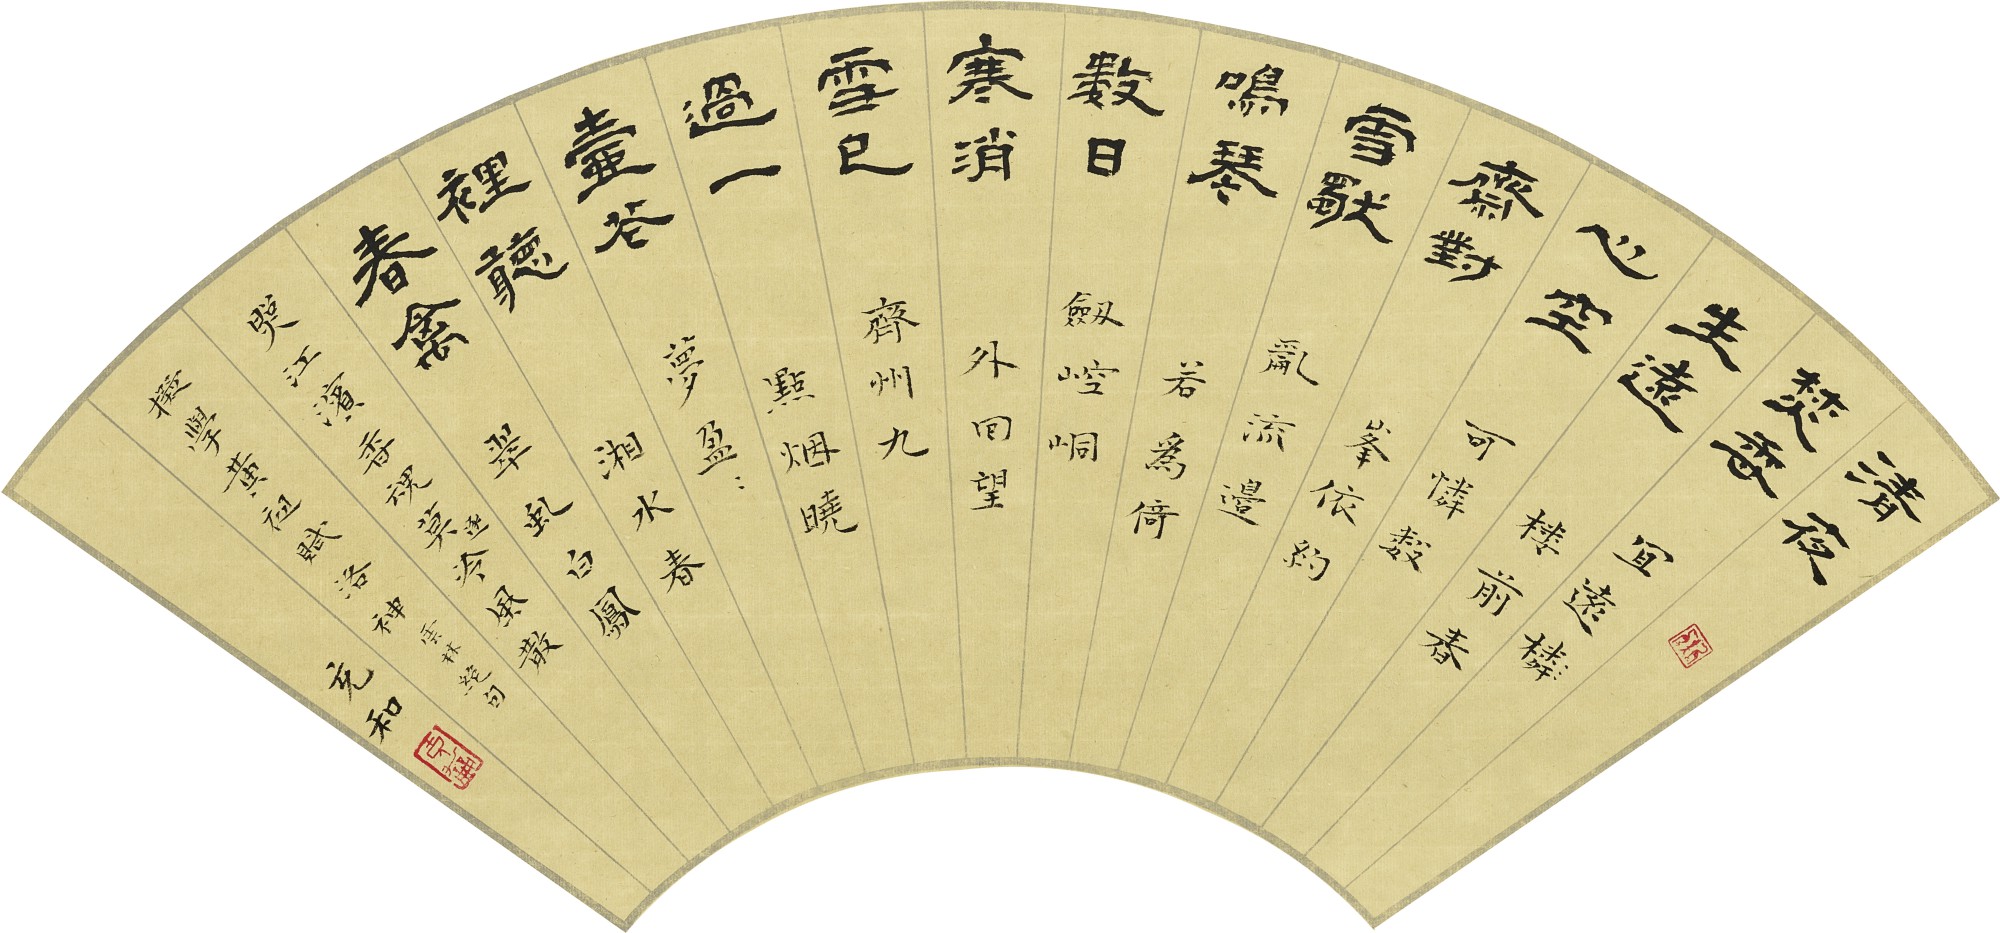 清夜
焚香
生遠
心空
齋對
雪獨
鳴琴
數日
寒消
雪已
過一
壺花
裡聽
春禽
宜遠
楼前春
可憐数
峯依約
亂流邊
若為倚
劔崆峒
外回望
齊州九
點烟曉
夢盈〻
湘水春
翠虬白鳳
照江濱香魂莫逐冷風散
擬學黃初賦洛神 雲林絕句
充和